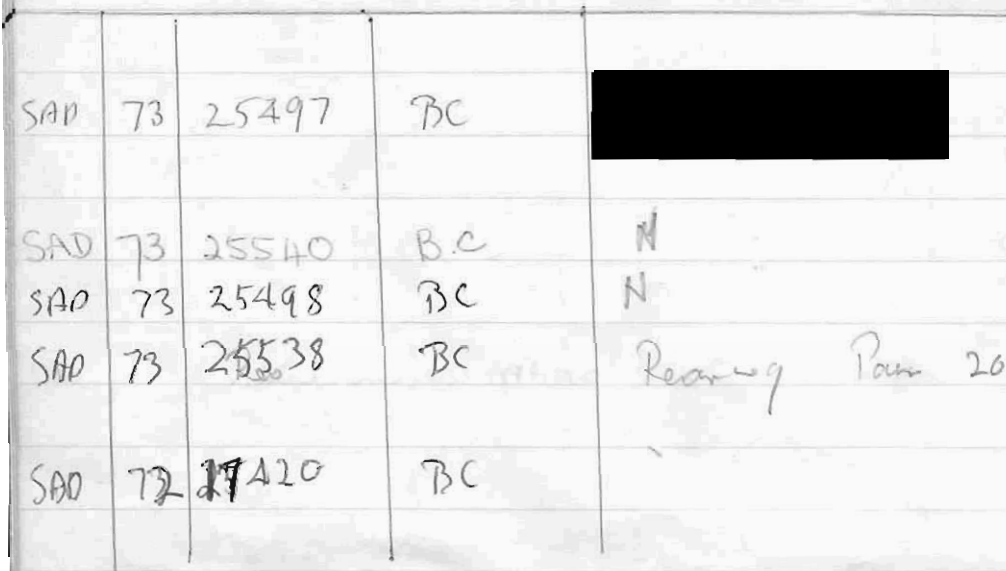 SAD 73 25497 BC
SAD 73 25540 B.C N
SAD 73 25498 BC N
SAD 73 25538 BC 20
SAD 72 17420 BC